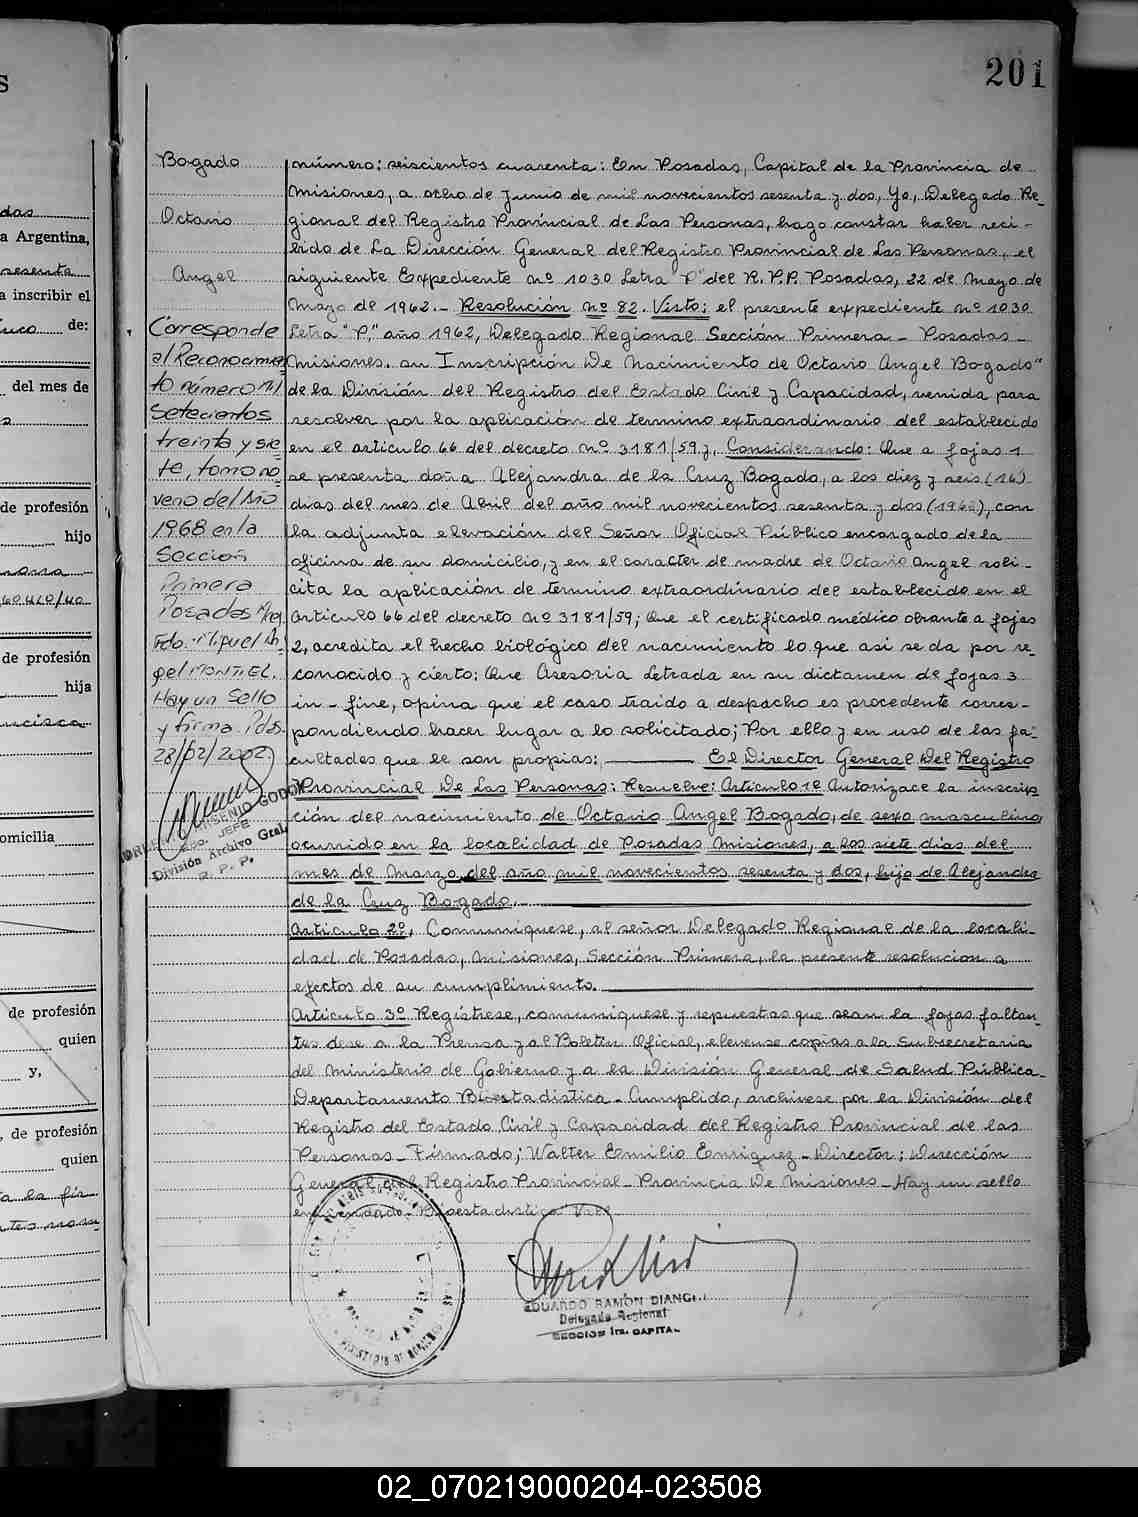 201
Bogado
Octavio
Angel
Corresponde
al Reconocimien
to número mil
setecientos
treinta y sie
te, tomo no-
veno del Año
1968 en la
Sección
Primera
Posadas Mnes.
Fdo. Miguel An-
gel MONTIEL.
Hay un sello
y firma. Pdas.
28/02/2002.
GODOY
JEFE
División Archivo Gral.
R. P. P.
número: seiscientos cuarenta: En Posadas, Capital de la Provincia de
Misiones, a ocho de Junio de mil novecientos sesenta y dos, Yo, Delegado Re-
gional del Registro Provincial de Las Personas, hago constar haber reci-
bido de La Dirección General del Registro Provincial de Las Personas, el
siguiente Expediente nº 1030 Letra "P" del R.P.P. Posadas, 22 de Mayo de
Mayo de 1962.- Resolución nº 82. Visto: el presente expediente nº 1030
Letra "P", año 1962, Delegado Regional Sección Primera - Posadas -
Misiones. su Inscripción De Nacimiento de Octavio Angel Bogado"
de la División del Registro del Estado Civil y Capacidad, venida para
resolver por la aplicación de termino extraordinario del establecido
en el articulo 66 del decreto nº 3181/59 y, Considerando: Que a fojas 1
se presenta doña Alejandra de la Cruz Bogado, a los diez y seis (16)
dias del mes de Abril del año mil novecientos sesenta y dos (1962), con
la adjunta elevación del Señor Oficial Público encargado de la
oficina de su domicilio, y en el caracter de madre de Octavio Angel soli-
cita la aplicación de termino extraordinario del establecido en el
Articulo 66 del decreto nº 3181/59; Que el certificado médico obrante a fojas
2, acredita el hecho biológico del nacimiento lo que asi se da por re-
conocido y cierto; Que Asesoria Letrada en su dictamen de fojas 3
in-fine, opina que el caso traido a despacho es procedente corres-
pondiendo hacer lugar a lo solicitado; Por ello y en uso de las fa-
cultades que le son propias: El Director General Del Registro
Provincial De Las Personas: Resuelve: Articulo 1º Autorizace la inscrip
ción del nacimiento de Octavio Angel Bogado, de sexo masculino
ocurrido en la localidad de Posadas Misiones, a los siete dias del
mes de Marzo del año mil novecientos sesenta y dos, hijo de Alejandra
de la Cruz Bogado.
Articulo 2º, Comuniquese, al señor Delegado Regional de la locali-
dad de Posadas, Misiones, Sección Primera, la presente resolucion a
efectos de su cumplimiento.
Articulo 3º Regístrese, comuniquese y repuestas que sean la fojas faltan-
tes dese a la Prensa y al Boletin Oficial, elevense copias a la Subsecretaria
del Ministerio de Gobierno y a la División General de Salud Pública-
Departamento Bioestadistica - Cumplido, archivese por la División del
Registro del Estado Civil y Capacidad del Registro Provincial de las
Personas - Firmado; Walter Emilio Enriquez - Director; Dirección
General del Registro Provincial - Provincia De Misiones - Hay un sello
enmendado - Bioestadistica Vale.
EDUARDO RAMON BIANCHI
Delegado Regional
SECCION 1ra. CAPITAL
S
das
a Argentina,
sesenta
a inscribir el
de:
del mes de
de profesión
hijo
de profesión
hija
omicilia
de profesión
quien
y,
, de profesión
quien
02_070219000204-023508